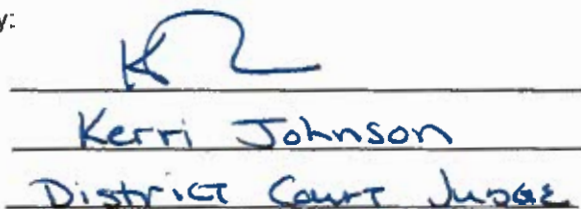 y:
Kerri Johnson
District Court Judge